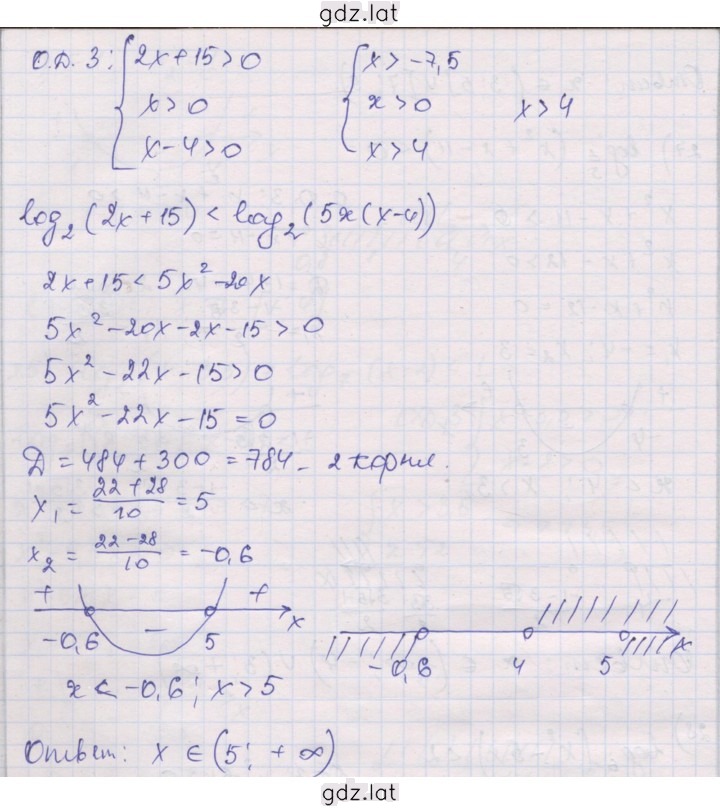 gdz.lat
О.Д.З: { 2x+15>0 { x>-7,5
x>0 x>0 x>4
x-4>0 x>4
log₂(2x+15) < log₂(5x(x-4))
2x+15 < 5x²-20x
5x²-20x-2x-15>0
5x²-22x-15>0
5x²-22x-15=0
Д=484+300=784 - 2 корня.
x₁ = (22+28)/10 = 5
x₂ = (22-28)/10 = -0,6
+ - + x
-0,6 5 -0,6 4 5 x
x < -0,6; x > 5
Ответ: x ∈ (5; +∞)
gdz.lat